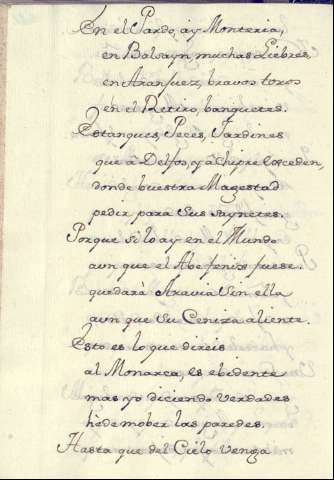 En el Pardo, ay Monteria,
en Balsayn, muchas Liebres
en Aranjuez, bravos toros
en el Retiro, banquetes.
Estanques, Peces, Jardines
que â Delfos, y â chipre exceden,
donde buestra Magestad
pedir para sus saynetes.
Porque si lo ay en el Mundo
aun que el Abe fenix fuese.
quedarà Aravia sin ella
aun que su Ceniza aliente.
Esto es lo que direis
al Monarca, es ebidente
mas yo diciendo verdades
hede mober las paredes.
Hasta que del Cielo venga